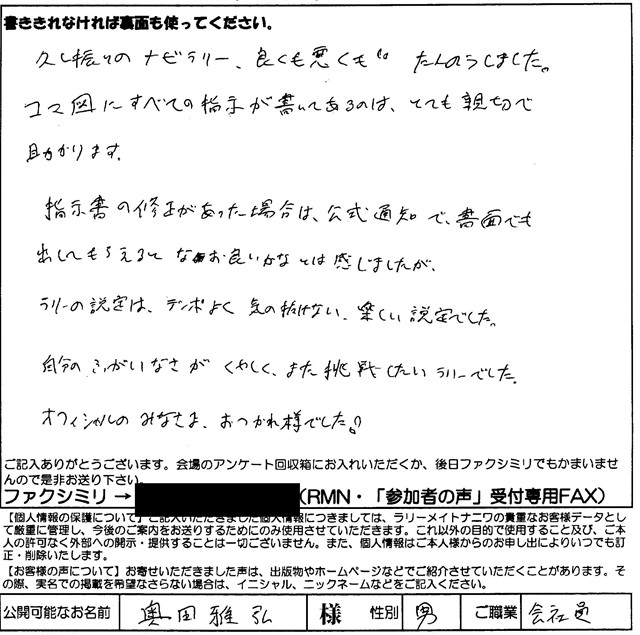 書ききれなければ裏面も使ってください。
久し振りのナビラリー、良くも悪くも たんのうしました。
コマ図にすべての指示が書いてあるのは、とても親切で
助かります。
指示書の修正があった場合は、公式通知で、書面でも
出してもらえるとなお良いかなとは感じましたが、
ラリーの設定は、テンポよく気の抜けない、楽しい設定でした。
自分のふがいなさがくやしく、また挑戦したいラリーでした。
オフィシャルのみなさま、おつかれ様でした。
ご記入ありがとうございます。会場のアンケート回収箱にお入れいただくか、後日ファクシミリでもかまいませ
んので是非お送り下さい。
ファクシミリ → (RMN・「参加者の声」受付専用FAX)
【個人情報の保護について】ご記入いただきました個人情報につきましては、ラリーメイトナニワの貴重なお客様データとし
て厳重に管理し、今後のご案内をお送りするためにのみ使用させていただきます。これ以外の目的で使用すること及び、ご本
人の許可なく外部への開示・提供することは一切ございません。また、個人情報はご本人様からのお申し出によりいつでも訂
正・削除いたします。
【お客様の声について】お寄せいただきました声は、出版物やホームページなどでご紹介させていただくことがあります。そ
の際、実名での掲載を希望なさらない場合は、イニシャル、ニックネームなどをご記入ください。
公開可能なお名前 奥田雅弘 様 性別 男 ご職業 会社員